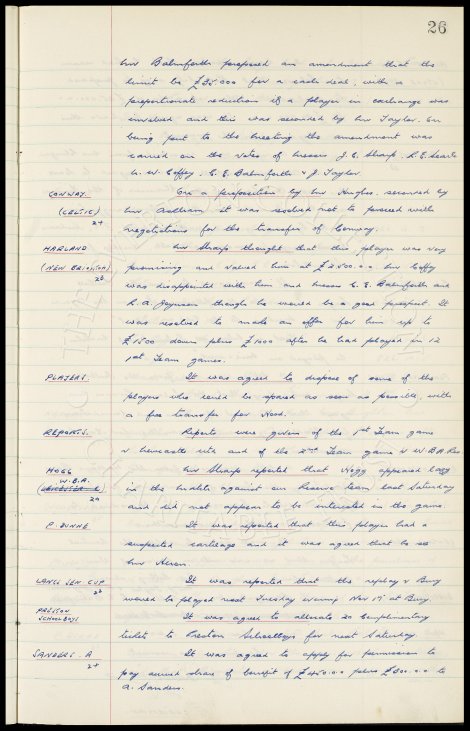 26
Mr Balmforth proposed an amendment that the
limit be £35,000 for a cash deal, with a
proportionate reduction if a player in exchange was
involved and this was seconded by Mr Taylor. On
being put to the meeting the amendment was
carried on the votes of Messrs J. E. Sharp,
W. Coffey, C. E. Balmforth & J. Taylor
CONWAY. On a proposition by Mr Hughes, seconded by
(CELTIC) Mr it was resolved not to proceed with
24 negotiations for the transfer of Conway.
HARLAND Mr Sharp thought that this player was very
(NEW BRIGHTON) promising and valued him at £2500.00 Mr Coffey
26 was disappointed with him and Messrs C. E. Balmforth and
R. A. Joynson thought he would be a good prospect. It
was resolved to make an offer for him up to
£1500 down plus £1000 after he had played in 12
1st Team games.
PLAYERS. It was agreed to dispose of some of the
players who could be spared as soon as possible, with
a free transfer for Hood.
REPORTS. Reports were given of the 1st Team game
v Newcastle Utd and of the 2nd Team game v W.B.A. Res
HOGG Mr Sharp reported that Hogg appeared lazy
W.B.A.
(LEICESTER C) in the match against our Reserve team last Saturday
and did not appear to be interested in the game.
P. DUNNE It was reported that this player had a
suspected cartilage and it was agreed that he see
Mr
LANCS SEN CUP It was reported that the replay v Bury
would be played next Tuesday evening Nov 19 at Bury.
PRESTON It was agreed to allocate 20 Complimentary
SCHOOLBOYS tickets to Preston Schoolboys for next Saturday.
SANDERS. A It was agreed to apply for permission to
24 pay accrued share of benefit of £450.00 plus £300.0.0 to
A. Sanders.